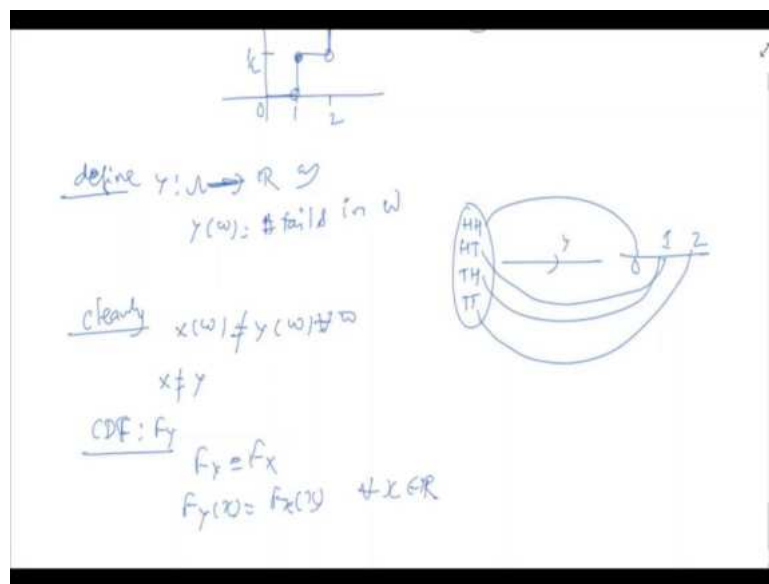 0 1 2
define Y: Ω → ℝ as
Y(ω) = # tails in ω
HH
HT
TH
TT
Y
0 1 2
Clearly X(ω) ≠ Y(ω) ∀ ω
X ≠ Y
CDF: F_Y
F_Y = F_X
F_Y(x) = F_X(x) ∀ x ∈ ℝ